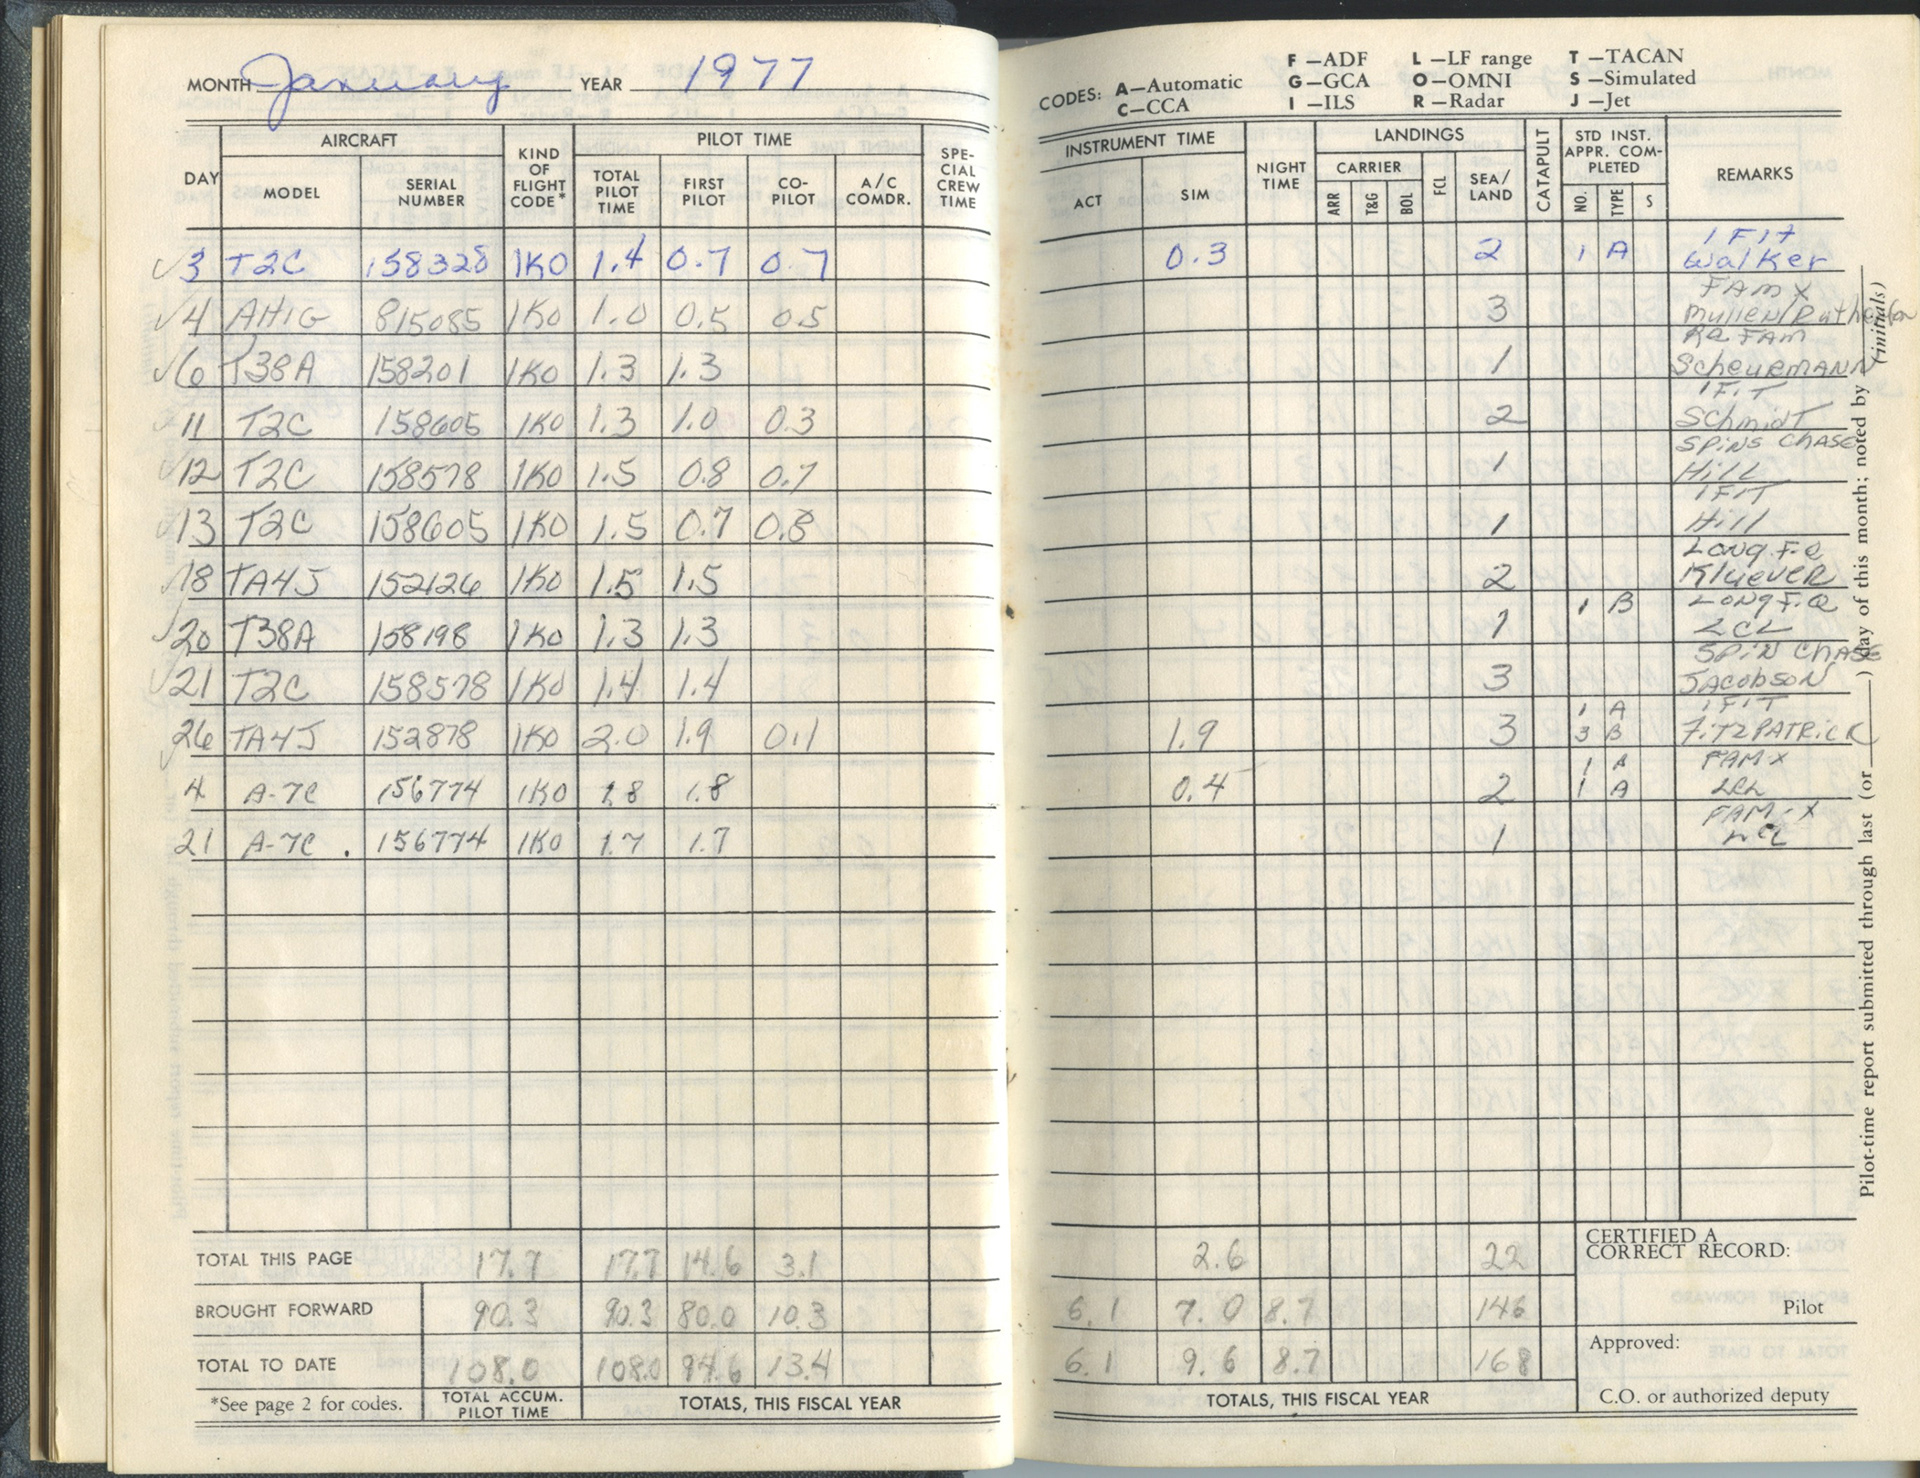 MONTH January YEAR 1977
DAY AIRCRAFT KIND OF FLIGHT CODE* PILOT TIME SPE-CIAL CREW TIME
MODEL SERIAL NUMBER TOTAL PILOT TIME FIRST PILOT CO-PILOT A/C COMDR.
3 T2C 158328 1K0 1.4 0.7 0.7
4 AH1G 815085 1K0 1.0 0.5 0.5
6 T38A 158201 1K0 1.3 1.3
11 T2C 158605 1K0 1.3 1.0 0.3
12 T2C 158578 1K0 1.5 0.8 0.7
13 T2C 158605 1K0 1.5 0.7 0.8
18 TA4J 152126 1K0 1.5 1.5
20 T38A 158198 1K0 1.3 1.3
21 T2C 158578 1K0 1.4 1.4
26 TA4J 152878 1K0 2.0 1.9 0.1
4 A-7C 156774 1K0 1.8 1.8
21 A-7C . 156774 1K0 1.7 1.7
TOTAL THIS PAGE 17.7 17.7 14.6 3.1
BROUGHT FORWARD 90.3 90.3 80.0 10.3
TOTAL TO DATE 108.0 108.0 94.6 13.4
*See page 2 for codes. TOTAL ACCUM. PILOT TIME TOTALS, THIS FISCAL YEAR
CODES: A—Automatic F—ADF L—LF range T—TACAN
C—CCA G—GCA O—OMNI S—Simulated
I—ILS R—Radar J—Jet
INSTRUMENT TIME NIGHT TIME LANDINGS CATAPULT STD INST. APPR. COM-PLETED REMARKS
ACT SIM CARRIER ARR T&G BOL FCL SEA/LAND NO. TYPE S
IFIT
0.3 2 1 A Walker
FAM X
3 Mullen/
Re FAM
1 Scheurmann
IFIT
2 Schmidt
SPINS CHASE
1 Hill
IFIT
1 Hill
Long F.Q
2 Kluever
1 B Long F.Q
1 LCL
SPIN CHASE
3 Jacobson
1 A IFIT
1.9 3 3 B FITZPATRICK
1 FAM X
0.4 2 1 A LCL
FAM-X
1 LCL
2.6 22 CERTIFIED A CORRECT RECORD:
6.1 7.0 8.7 146 Pilot
6.1 9.6 8.7 168 Approved:
TOTALS, THIS FISCAL YEAR C.O. or authorized deputy
Pilot-time report submitted through last (or ____) day of this month; noted by ____ (initials)